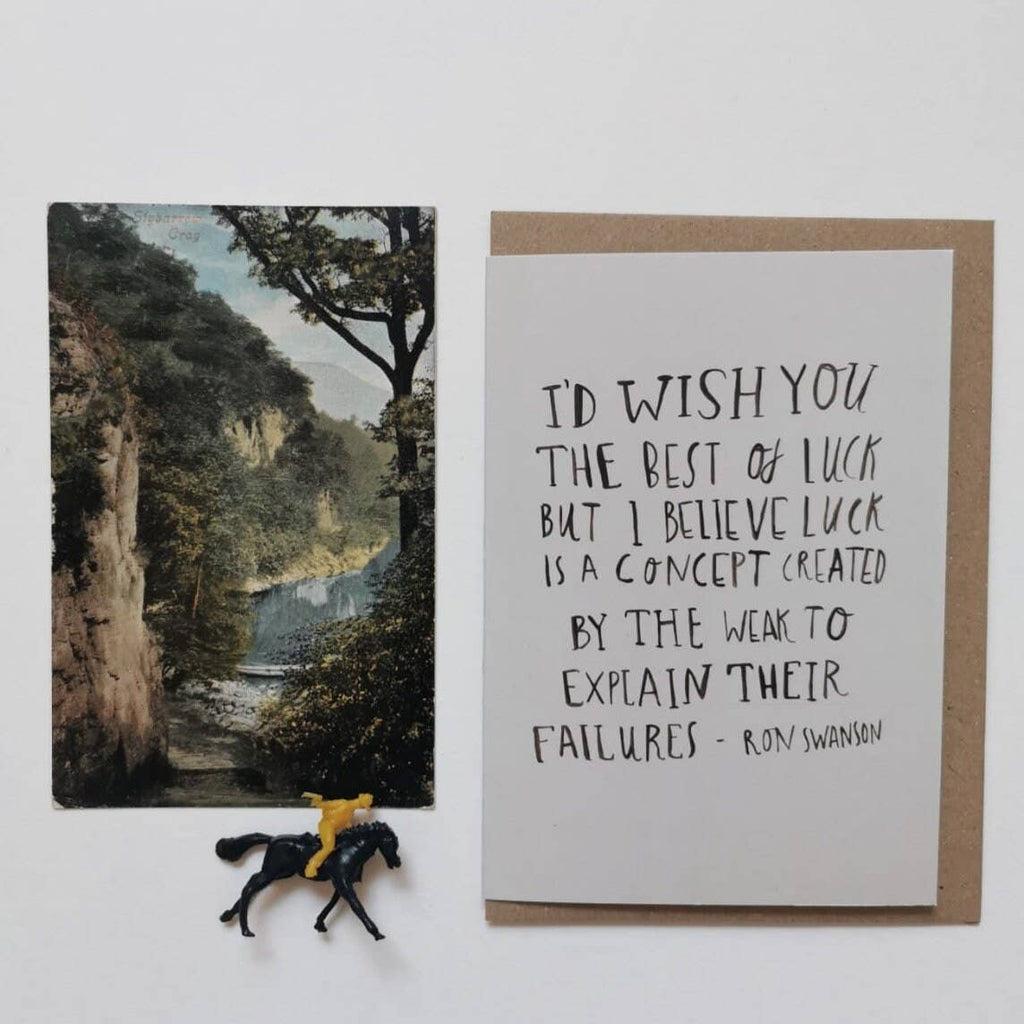 Stybarrow
Crag
I'D WISH YOU
THE BEST of LUCK
BUT I BELIEVE LUCK
IS A CONCEPT CREATED
BY THE WEAK TO
EXPLAIN THEIR
FAILURES - RON SWANSON